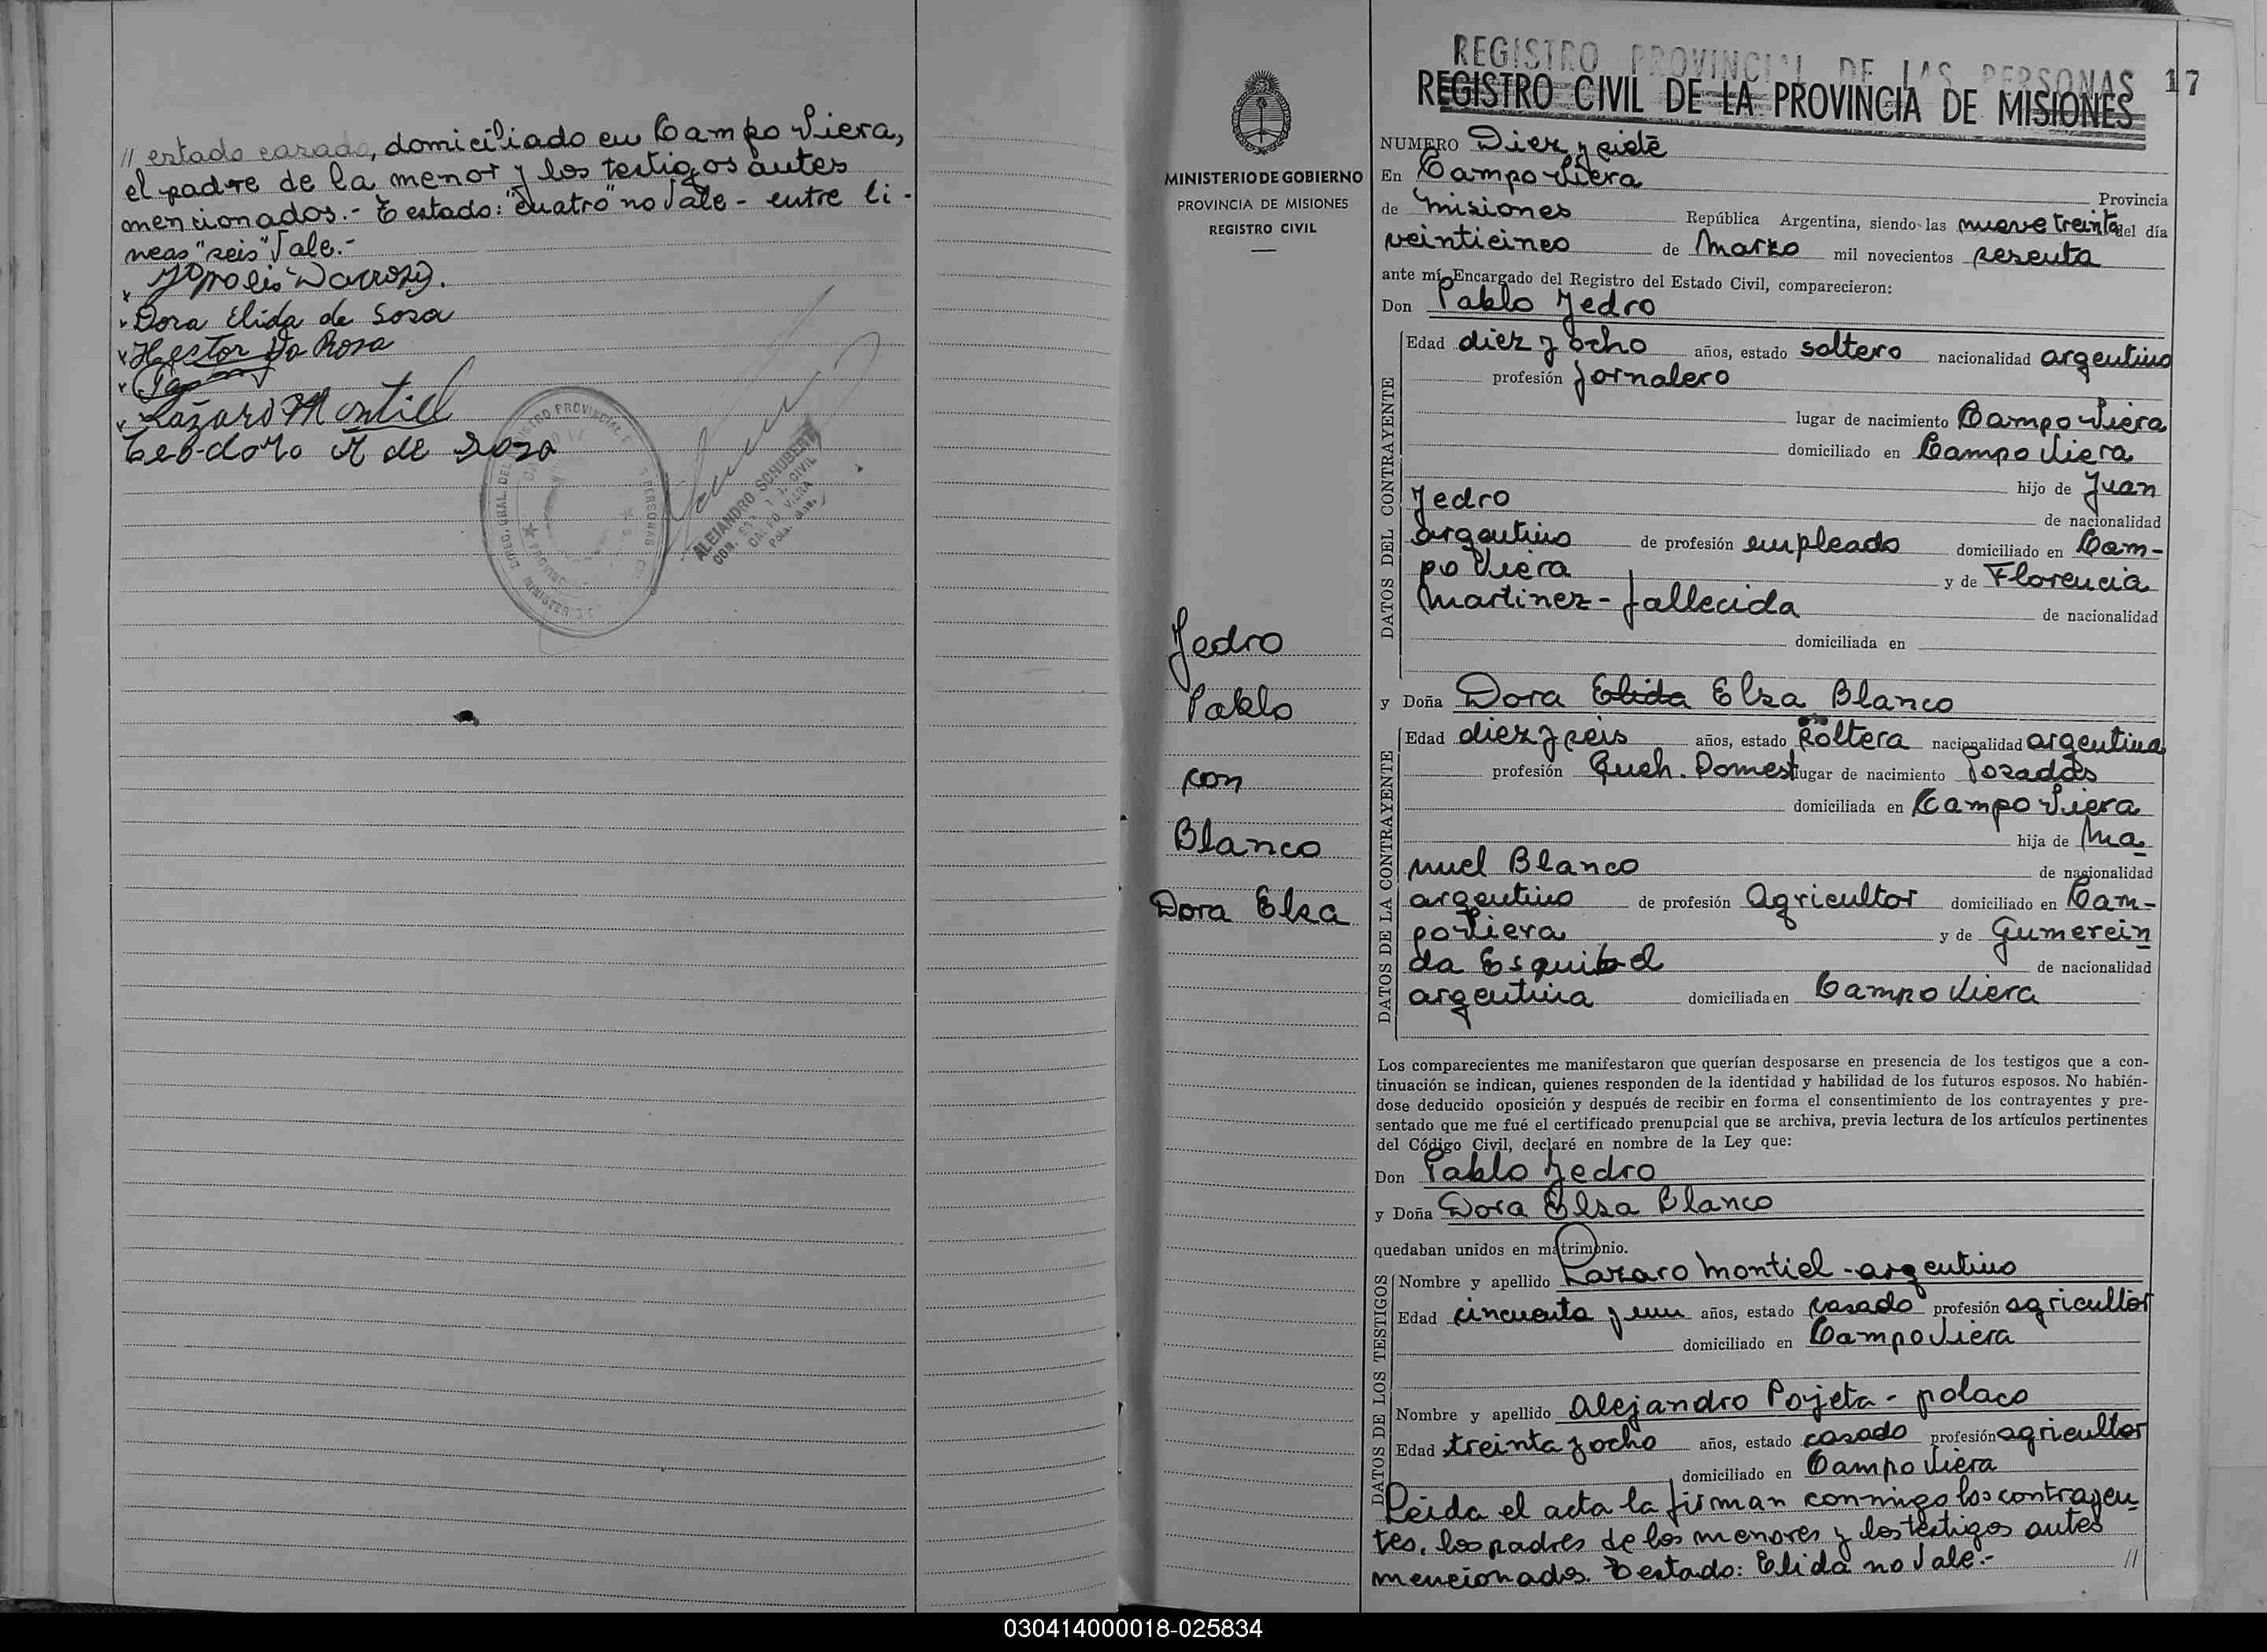 // estado casado, domiciliado en Campo Viera,
el padre de la menor y los testigos antes
mencionados.- Testado: "cuatro" no Vale - entre li-
neas "seis" Vale.-
Dora Elida de Sosa
Hector Da Rosa
Lázaro Montiel
Teodoro R de Soza
ALEJANDRO SCHUBERT
MINISTERIO DE GOBIERNO
PROVINCIA DE MISIONES
REGISTRO CIVIL
Yedro
Pablo
con
Blanco
Dora Elsa
REGISTRO PROVINCIAL DE LAS PERSONAS
REGISTRO CIVIL DE LA PROVINCIA DE MISIONES
17
NUMERO Diez y siete
En Campo Viera Provincia
de Misiones República Argentina, siendo las nueve treinta del día
veinticinco de Marzo mil novecientos sesenta
ante mí Encargado del Registro del Estado Civil, comparecieron:
Don Pablo Yedro
DATOS DEL CONTRAYENTE
Edad diez y ocho años, estado soltero nacionalidad argentino
profesión jornalero
lugar de nacimiento Campo Viera
domiciliado en Campo Viera
hijo de Juan
Yedro de nacionalidad
argentino de profesión empleado domiciliado en Cam-
po Viera y de Florencia
Martinez - fallecida de nacionalidad
domiciliada en
y Doña Dora Elida Elsa Blanco
DATOS DE LA CONTRAYENTE
Edad diez y seis años, estado soltera nacionalidad argentina
profesión Queh. Domest lugar de nacimiento Posadas
domiciliada en Campo Viera
hija de Ma-
nuel Blanco de nacionalidad
argentino de profesión Agricultor domiciliado en Cam-
po Viera y de Gumercin
da Esquibel de nacionalidad
argentina domiciliada en Campo Viera
Los comparecientes me manifestaron que querían desposarse en presencia de los testigos que a con-
tinuación se indican, quienes responden de la identidad y habilidad de los futuros esposos. No habién-
dose deducido oposición y después de recibir en forma el consentimiento de los contrayentes y pre-
sentado que me fué el certificado prenupcial que se archiva, previa lectura de los artículos pertinentes
del Código Civil, declaré en nombre de la Ley que:
Don Pablo Yedro
y Doña Dora Elsa Blanco
quedaban unidos en matrimonio.
DATOS DE LOS TESTIGOS
Nombre y apellido Lazaro Montiel - argentino
Edad cincuenta y un años, estado casado profesión agricultor
domiciliado en Campo Viera
Nombre y apellido Alejandro Pojeta - polaco
Edad treinta y ocho años, estado casado profesión agricultor
domiciliado en Campo Viera
Leida el acta la firman conmigo los contrayen-
tes, los padres de los menores y los testigos antes
mencionados. Testado: Elida no Vale.- //
030414000018-025834